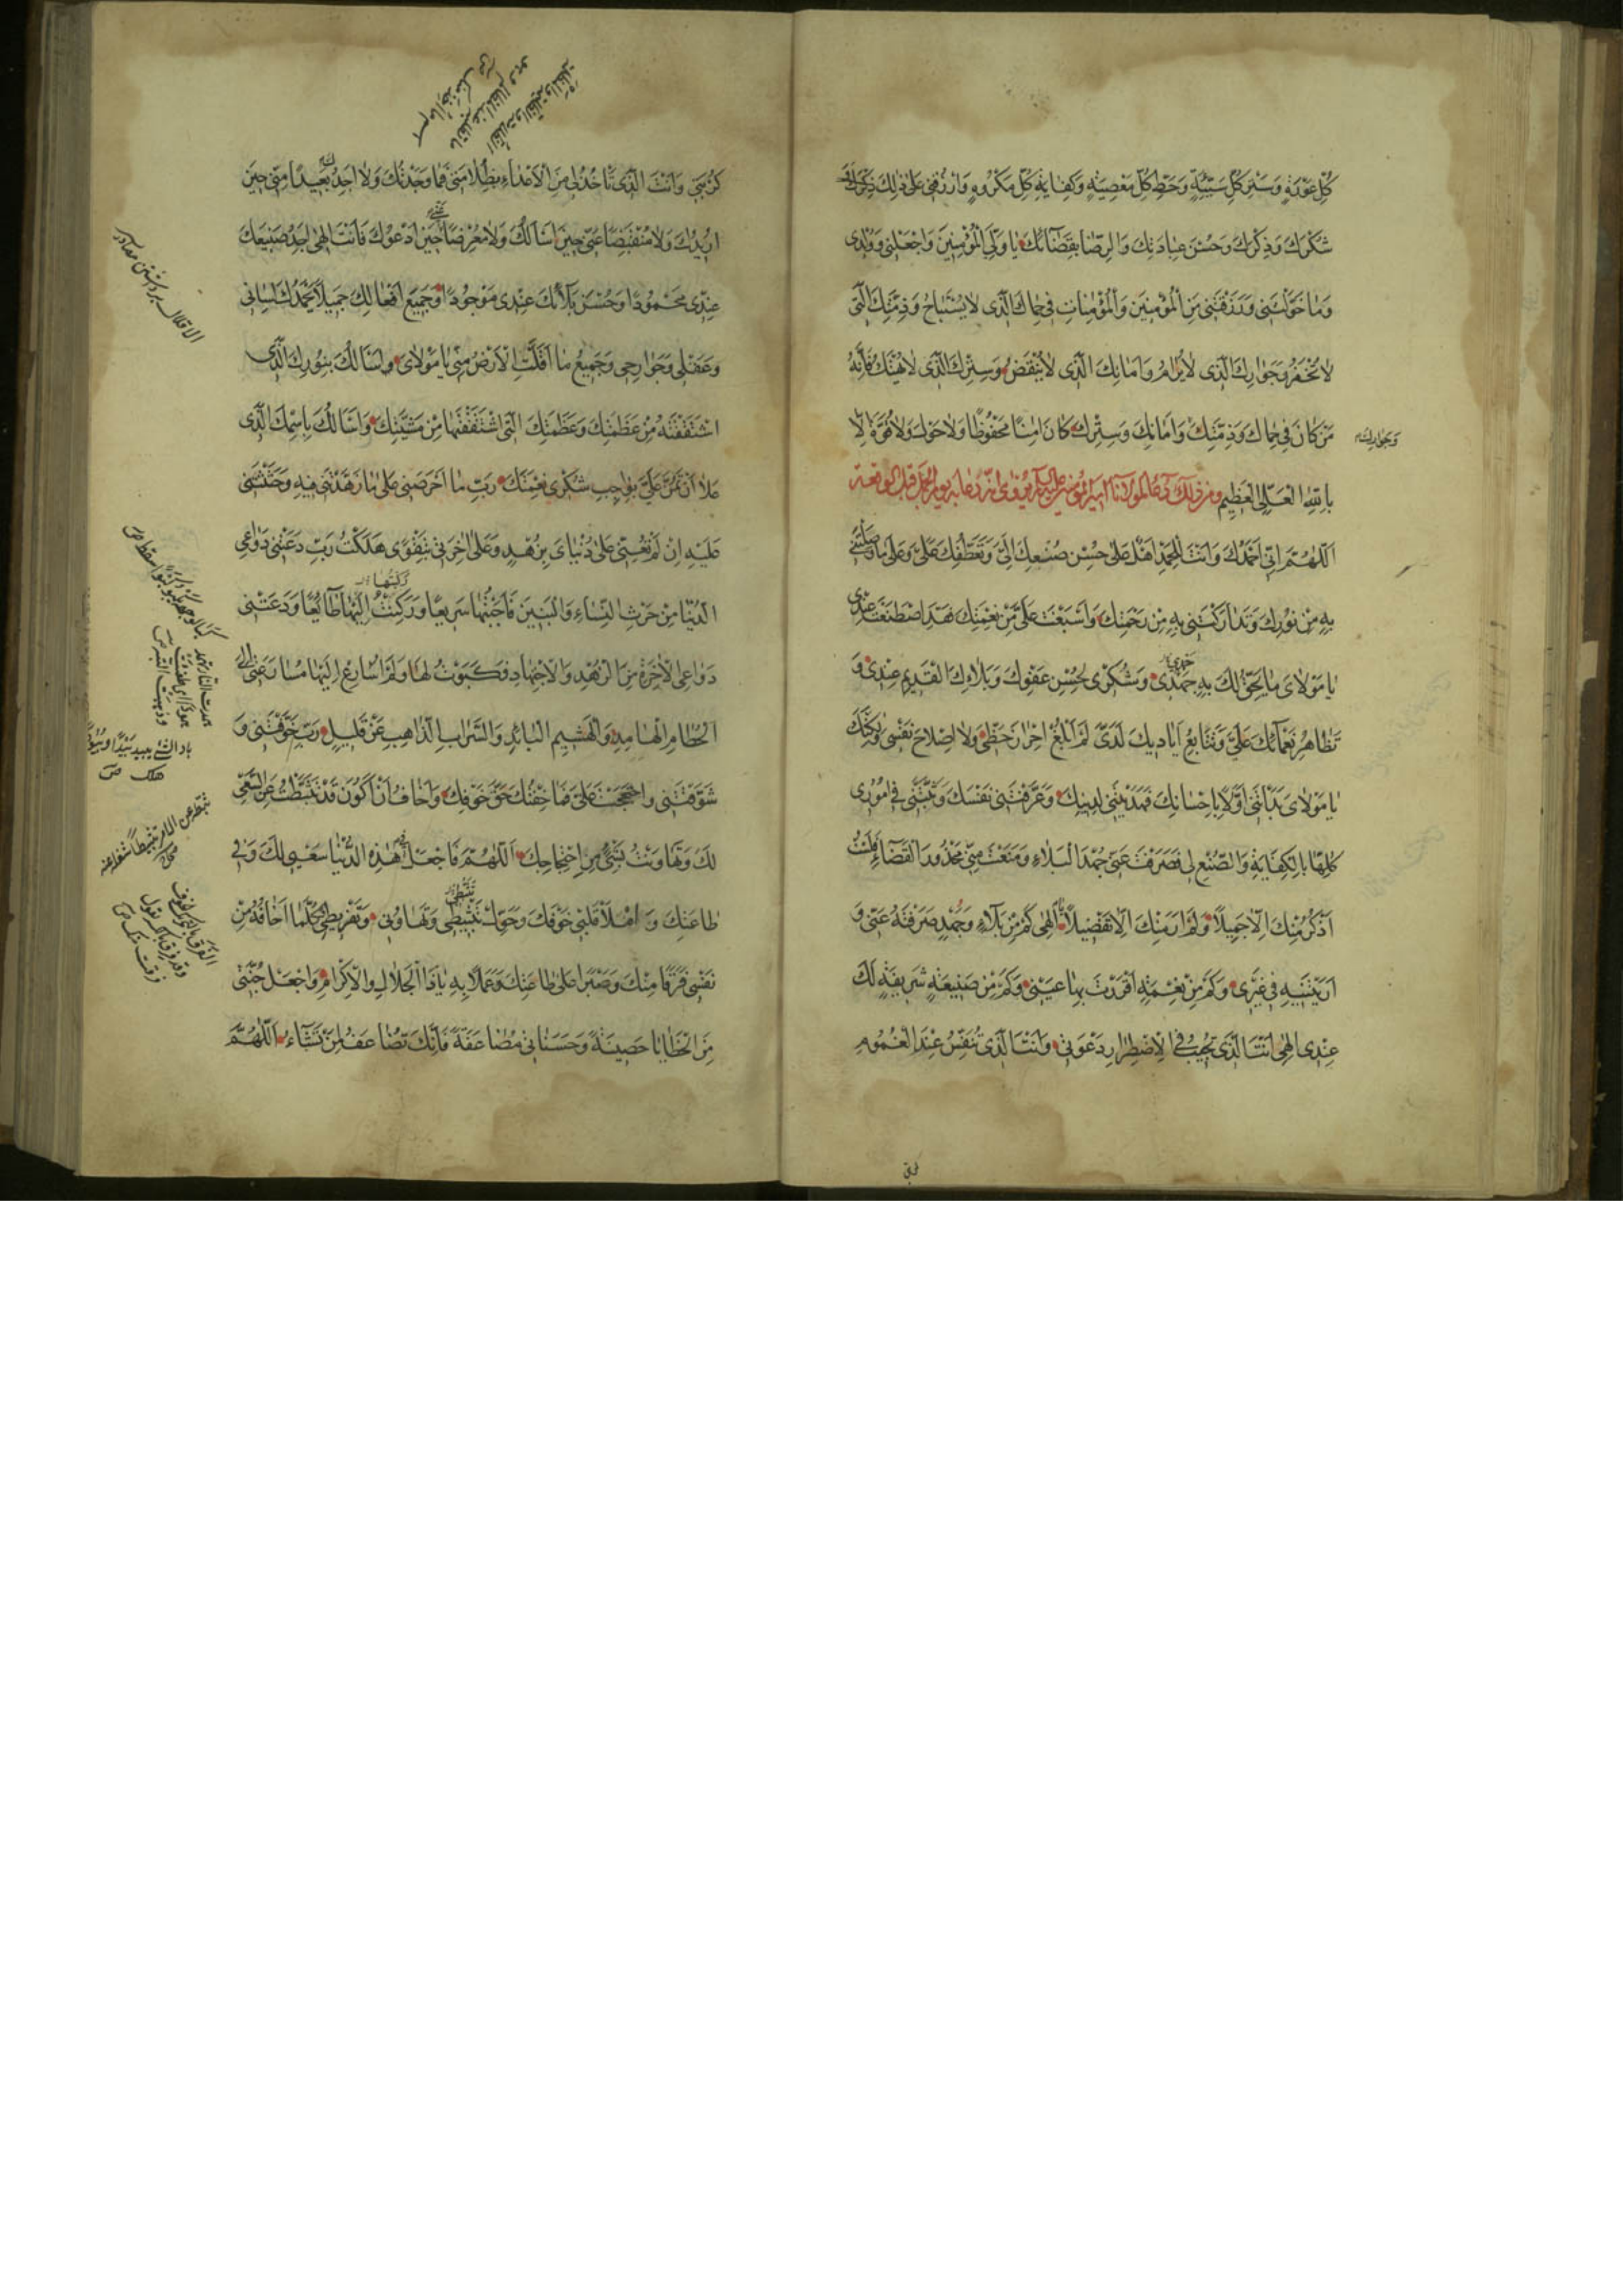 كُلِّ عَوْرَةٍ وَسَتْرِ كُلِّ سَيِّئَةٍ وَحَطِّ كُلِّ مَعْصِيَةٍ وَكِفَايَةِ كُلِّ مَكْرُوهٍ وَارْزُقْنِي عَلَى ذٰلِكَ
شُكْرَكَ وَذِكْرَكَ وَحُسْنَ عِبَادَتِكَ وَالرِّضَا بِقَضَائِكَ يَا وَلِيَّ الْمُؤْمِنِينَ وَاجْعَلْنِي وَوُلْدِي
وَمَا خَوَّلْتَنِي وَرَزَقْتَنِي مِنَ الْمُؤْمِنِينَ وَالْمُؤْمِنَاتِ فِي حِمَاكَ الَّذِي لَا يُسْتَبَاحُ وَذِمَّتِكَ الَّتِي
لَا تُخْفَرُ وَجِوَارِكَ الَّذِي لَا يُرَامُ وَأَمَانِكَ الَّذِي لَا يُنْقَضُ وَسِتْرِكَ الَّذِي لَا يُهْتَكُ فَإِنَّهُ
مَنْ كَانَ فِي حِمَاكَ وَذِمَّتِكَ وَأَمَانِكَ وَسِتْرِكَ كَانَ آمِنًا مَحْفُوظًا وَلَا حَوْلَ وَلَا قُوَّةَ إِلَّا
وَجِوَارِكَ
بِاللهِ الْعَلِيِّ الْعَظِيمِ وَمِنْ ذٰلِكَ دُعَاءٌ لِمَوْلَانَا أَمِيرِ الْمُؤْمِنِينَ عَلَيْهِ السَّلَامُ يَوْمَ الْجَمَلِ قَبْلَ الْوَقْعَةِ
اَللّٰهُمَّ إِنِّي أَحْمَدُكَ وَأَنْتَ لِلْحَمْدِ أَهْلٌ عَلَى حُسْنِ صُنْعِكَ إِلَيَّ وَتَعَطُّفِكَ عَلَيَّ وَعَلَى مَا وَصَلْتَنِي
بِهِ مِنْ نُورِكَ وَتَدَارَكْتَنِي بِهِ مِنْ رَحْمَتِكَ وَأَسْبَغْتَ عَلَيَّ مِنْ نِعْمَتِكَ فَقَدِ اصْطَنَعْتَ عِنْدِي
يَا مَوْلَايَ مَا يَحِقُّ لَكَ بِهِ حَمْدِي وَشُكْرِي لِحُسْنِ عَفْوِكَ وَبَلَائِكَ الْقَدِيمِ عِنْدِي وَ
تَظَاهُرِ نَعْمَائِكَ عَلَيَّ وَتَتَابُعِ أَيَادِيكَ لَدَيَّ لَمْ أَبْلُغْ إِحْرَازَ حَظِّي وَلَا إِصْلَاحَ نَفْسِي وَلٰكِنَّكَ
يَا مَوْلَايَ بَدَأْتَنِي أَوَّلًا بِإِحْسَانِكَ فَهَدَيْتَنِي لِدِينِكَ وَعَرَّفْتَنِي نَفْسَكَ وَثَبَّتَّنِي فِي أُمُورِي
كُلِّهَا بِالْكِفَايَةِ وَالصُّنْعِ لِي فَصَرَفْتَ عَنِّي جَهْدَ الْبَلَاءِ وَمَنَعْتَ مِنِّي مَحْذُورَ الْقَضَاءِ فَلَسْتُ
أَذْكُرُ مِنْكَ إِلَّا جَمِيلًا وَلَمْ أَرَ مِنْكَ إِلَّا تَفْضِيلًا إِلٰهِي كَمْ مِنْ بَلَاءٍ وَجَهْدٍ صَرَفْتَهُ عَنِّي وَ
أَرَيْتَنِيهِ فِي غَيْرِي وَكَمْ مِنْ نِعْمَةٍ أَقْرَرْتَ بِهَا عَيْنِي وَكَمْ مِنْ صَنِيعَةٍ شَرِيفَةٍ لَكَ
عِنْدِي إِلٰهِي أَنْتَ الَّذِي تُجِيبُ فِي الْاِضْطِرَارِ دَعْوَتِي وَأَنْتَ الَّذِي تُنَفِّسُ عِنْدَ الْغُمُومِ
كُرْبَتِي وَأَنْتَ الَّذِي تَأْخُذُ لِي مِنَ الْأَعْدَاءِ بِظُلَامَتِي فَمَا وَجَدْتُكَ وَلَا أَجِدُكَ بَعِيدًا مِنِّي حِينَ
أُرِيدُكَ وَلَا مُنْقَبِضًا عَنِّي حِينَ أَسْأَلُكَ وَلَا مُعْرِضًا عَنِّي حِينَ أَدْعُوكَ فَأَنْتَ إِلٰهِي أَجِدُ صَنِيعَكَ
عِنْدِي مَحْمُودًا وَحُسْنَ بَلَائِكَ عِنْدِي مَوْجُودًا وَجَمِيعَ أَفْعَالِكَ جَمِيلًا يَحْمَدُكَ لِسَانِي
وَعَقْلِي وَجَوَارِحِي وَجَمِيعُ مَا أَقَلَّتِ الْأَرْضُ مِنِّي يَا مَوْلَايَ وَأَسْأَلُكَ بِنُورِكَ الَّذِي
اشْتَقَقْتَهُ مِنْ عَظَمَتِكَ وَعَظَمَتِكَ الَّتِي اشْتَقَقْتَهَا مِنْ مَشِيَّتِكَ وَأَسْأَلُكَ بِاسْمِكَ الَّذِي
عَلَا أَنْ تَمُنَّ عَلَيَّ بِوَاجِبِ شُكْرِي نِعْمَتَكَ رَبِّ مَا أَحْرَصَنِي عَلَى مَا زَهَّدْتَنِي فِيهِ وَحَثَثْتَنِي
عَلَيْهِ إِنْ لَمْ تُعِنِّي عَلَى دُنْيَايَ بِزُهْدٍ وَعَلَى آخِرَتِي بِتَقْوًى هَلَكْتُ رَبِّ دَعَتْنِي دَوَاعِي
الدُّنْيَا مِنْ حَرْثِ النِّسَاءِ وَالْبَنِينَ فَأَجَبْتُهَا سَرِيعًا وَرَكِبْتُ إِلَيْهَا طَائِعًا وَدَعَتْنِي
دَوَاعِي الْآخِرَةِ مِنَ الزُّهْدِ وَالْاِجْتِهَادِ فَكَبَوْتُ لَهَا وَلَمْ أُسَارِعْ إِلَيْهَا مُسَارَعَتِي إِلَى
الْحُطَامِ الْهَامِدِ وَالْهَشِيمِ الْبَائِدِ وَالسَّرَابِ الذَّاهِبِ عَنْ قَلِيلٍ رَبِّ خَوَّفْتَنِي وَ
شَوَّقْتَنِي وَاحْتَجَجْتَ عَلَيَّ فَمَا خِفْتُكَ حَقَّ خَوْفِكَ وَأَخَافُ أَنْ أَكُونَ قَدْ تَثَبَّطْتُ عَنِ السَّعْيِ
لَكَ وَتَهَاوَنْتُ بِشَيْءٍ مِنِ احْتِجَاجِكَ اَللّٰهُمَّ فَاجْعَلْ فِي هٰذِهِ الدُّنْيَا سَعْيِي لَكَ وَفِي
طَاعَتِكَ وَامْلَأْ قَلْبِي خَوْفَكَ وَحَوِّلْ تَثْبِيطِي وَتَهَاوُنِي وَتَفْرِيطِي وَكُلَّمَا أَخَافُهُ مِنْ
نَفْسِي فَرَقًا مِنْكَ وَصَبْرًا عَلَى طَاعَتِكَ وَعَمَلًا بِهِ يَا ذَا الْجَلَالِ وَالْإِكْرَامِ وَاجْعَلْ جُنَّتِي
مِنَ الْخَطَايَا حَصِينَةً وَحَسَنَاتِي مُضَاعَفَةً فَإِنَّكَ تُضَاعِفُ لِمَنْ تَشَاءُ اَللّٰهُمَّ